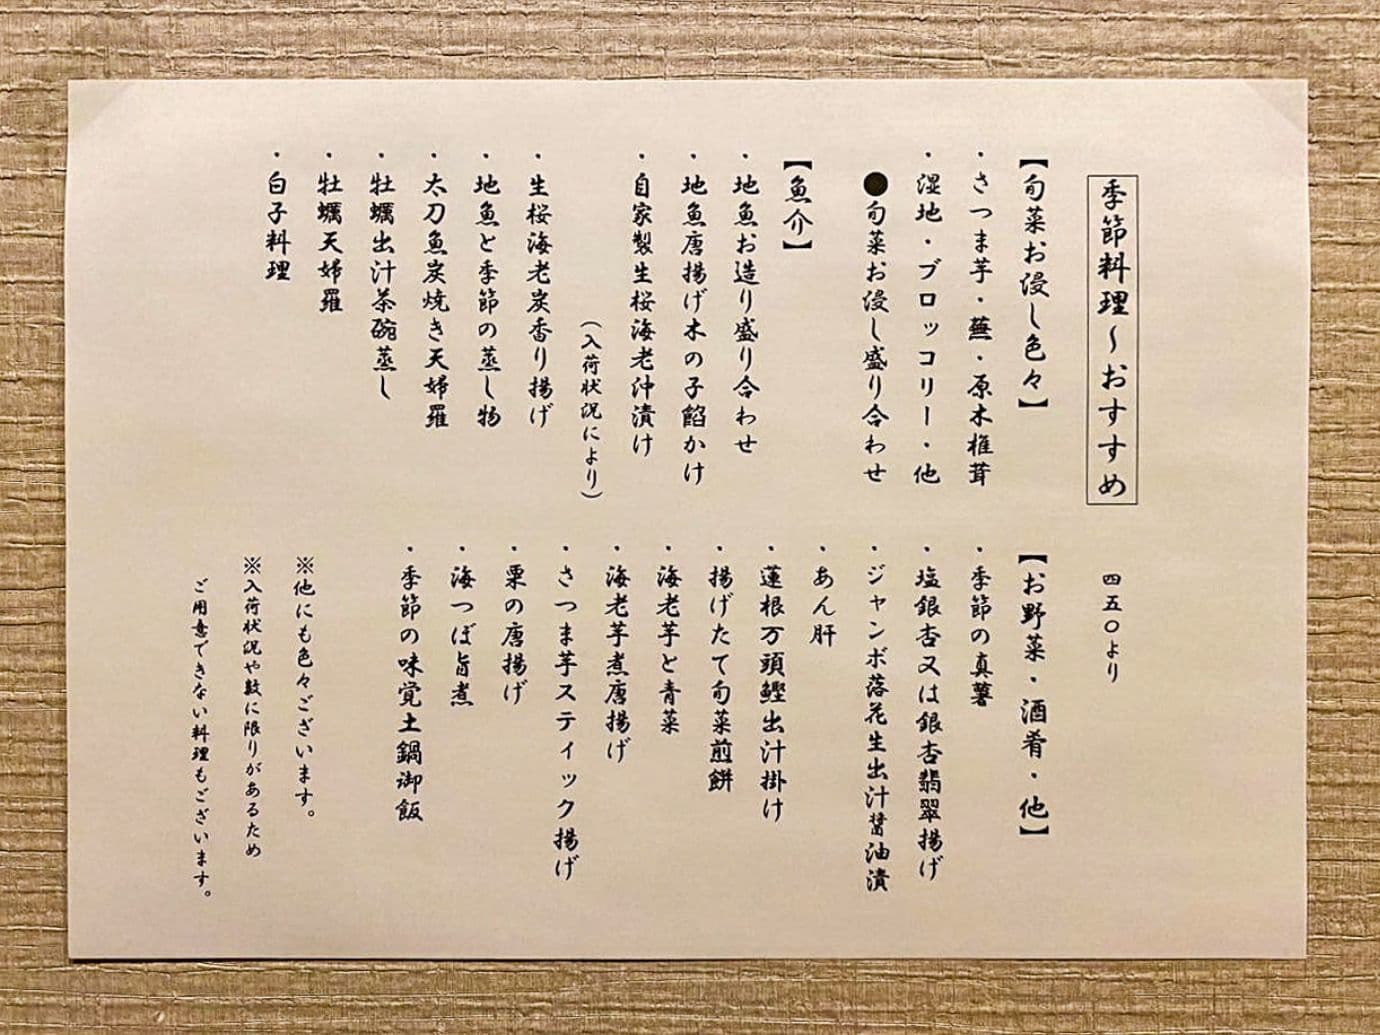 季節料理～おすすめ
四五〇より
【旬菜お浸し色々】
・さつま芋・蕪・原木椎茸
・湿地・ブロッコリー・他
●旬菜お浸し盛り合わせ
【魚介】
・地魚お造り盛り合わせ
・地魚唐揚げ木の子餡かけ
・自家製生桜海老沖漬け
（入荷状況により）
・生桜海老炭香り揚げ
・地魚と季節の蒸し物
・太刀魚炭焼き天婦羅
・牡蠣出汁茶碗蒸し
・牡蠣天婦羅
・白子料理
【お野菜・酒肴・他】
・季節の真薯
・塩銀杏又は銀杏翡翠揚げ
・ジャンボ落花生出汁醤油漬
・あん肝
・蓮根万頭鰹出汁掛け
・揚げたて旬菜煎餅
・海老芋と青菜
・海老芋煮唐揚げ
・さつま芋スティック揚げ
・栗の唐揚げ
・海つぼ旨煮
・季節の味覚土鍋御飯
※他にも色々ございます。
※入荷状況や数に限りがあるため
ご用意できない料理もございます。